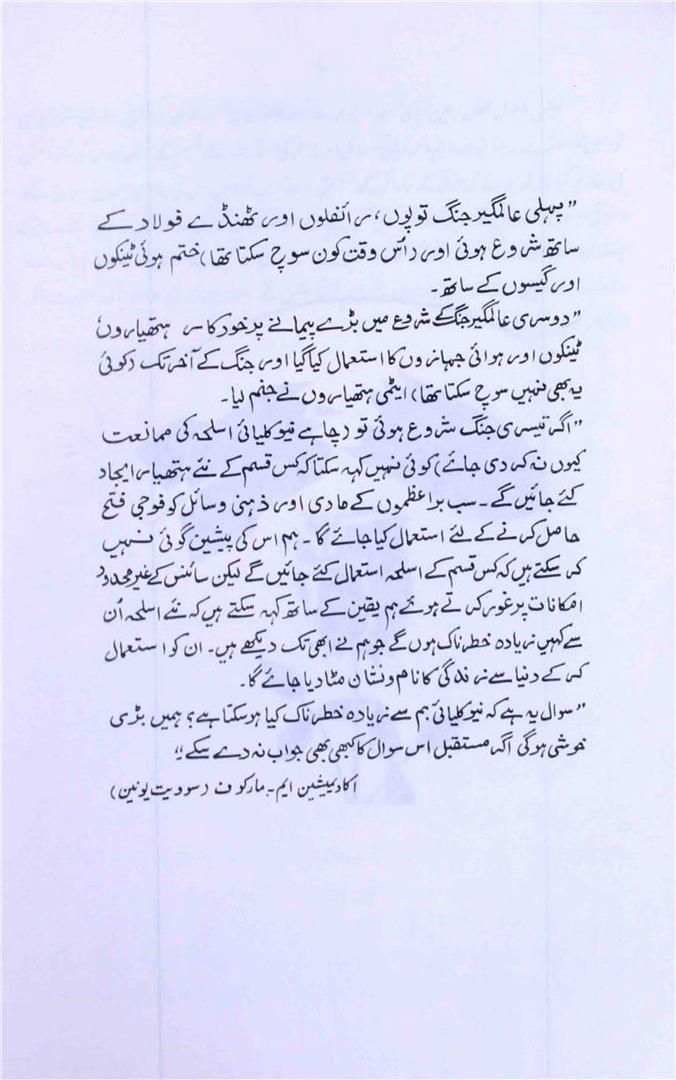 ”پہلی عالمگیر جنگ توپوں، رائفلوں اور ٹھنڈے فولاد کے
ساتھ شروع ہوئی اور (اُس وقت کون سوچ سکتا تھا) ختم ہوئی ٹینکوں
اور گیسوں کے ساتھ۔
”دوسری عالمگیر جنگ کے شروع میں بڑے پیمانے پر خودکار ہتھیاروں
ٹینکوں اور ہوائی جہازوں کا استعمال کیا گیا اور جنگ کے آخر تک (کوئی
یہ بھی نہیں سوچ سکتا تھا) ایٹمی ہتھیاروں نے جنم لیا۔
”اگر تیسری جنگ شروع ہوئی تو (چاہے نیوکلیائی اسلحہ کی ممانعت
کیوں نہ کر دی جائے) کوئی نہیں کہہ سکتا کہ کس قسم کے نئے ہتھیار ایجاد
کئے جائیں گے۔ سب براعظموں کے مادی اور ذہنی وسائل کو فوجی فتح
حاصل کرنے کے لئے استعمال کیا جائے گا۔ ہم اس کی پیشین گوئی نہیں
کر سکتے ہیں کہ کس قسم کے اسلحہ استعمال کئے جائیں گے لیکن سائنس کے غیر محدود
امکانات پر غور کرتے ہوئے ہم یقین کے ساتھ کہہ سکتے ہیں کہ نئے اسلحہ اُن
سے کہیں زیادہ خطرناک ہوں گے جو ہم نے ابھی تک دیکھے ہیں۔ ان کو استعمال
کر کے دنیا سے زندگی کا نام و نشان مٹا دیا جائے گا۔
”سوال یہ ہے کہ نیوکلیائی بم سے زیادہ خطرناک کیا ہو سکتا ہے؟ ہمیں بڑی
خوشی ہو گی اگر مستقبل اس سوال کا کبھی بھی جواب نہ دے سکے“
اکادیمیشین ایم۔ مارکوف (سوویت یونین)